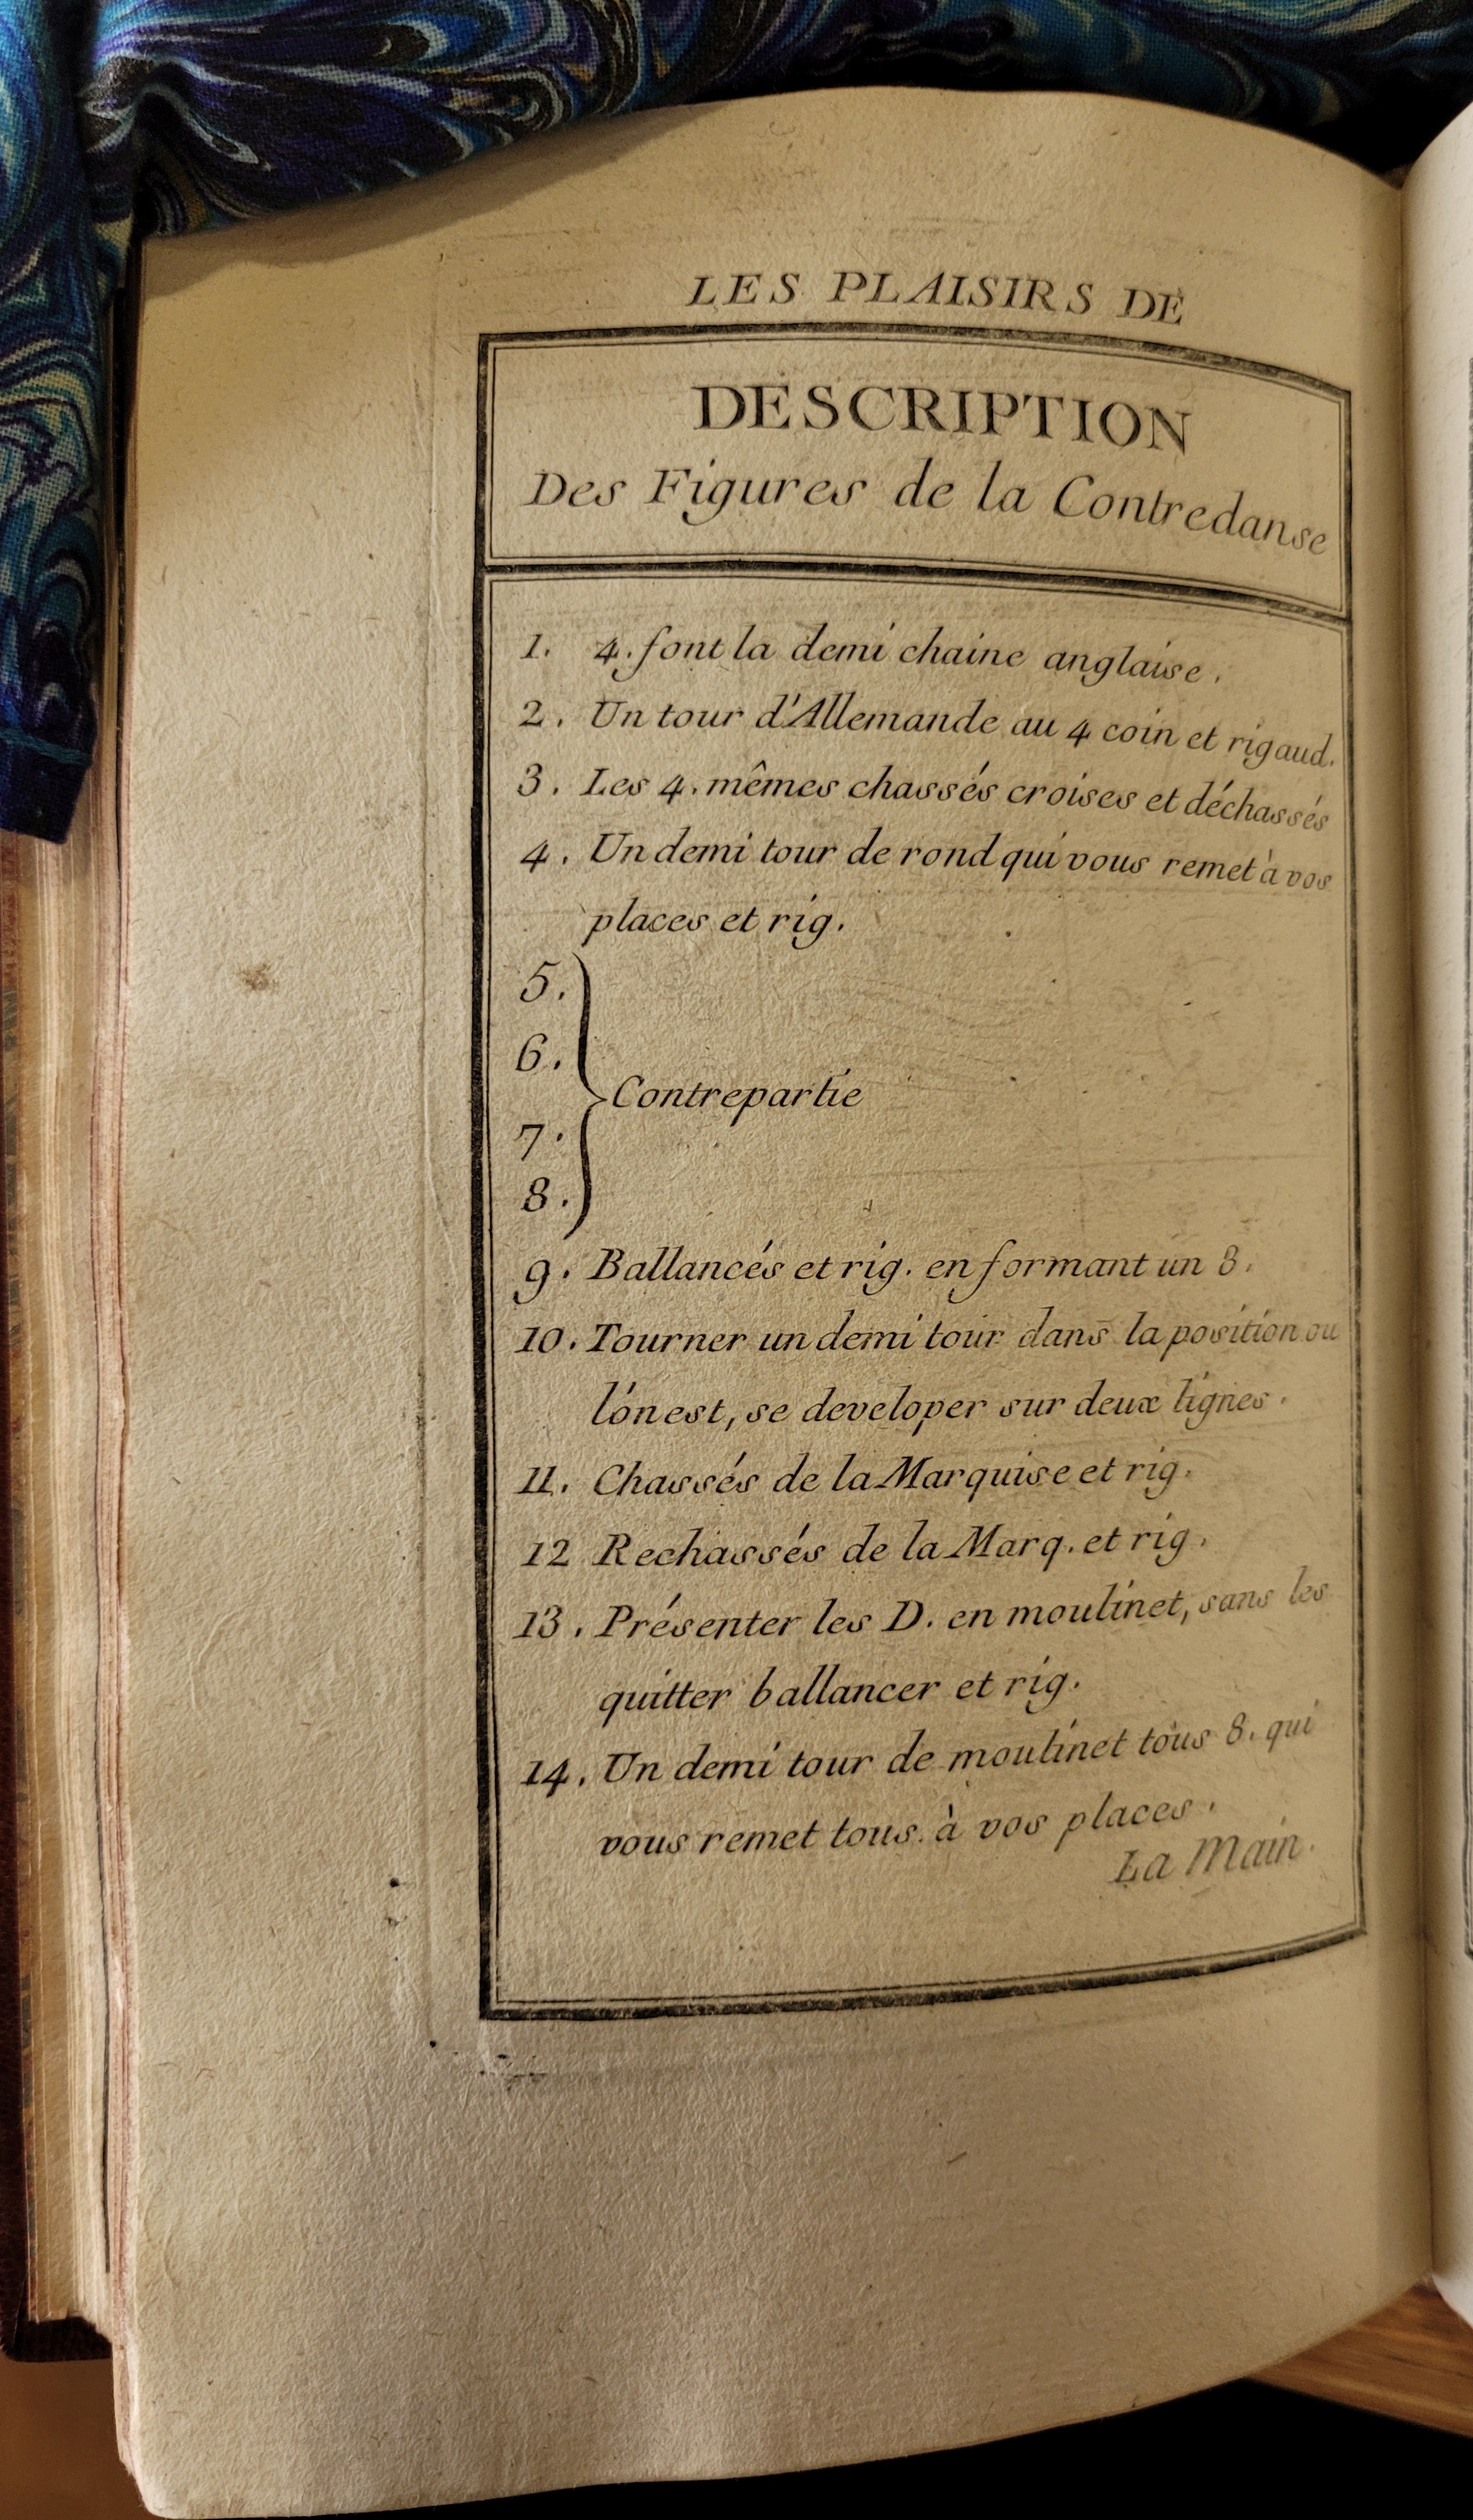 LES PLAISIRS DE
DESCRIPTION
Des Figures de la Contredanse
1. 4. font la demi chaine anglaise.
2. Un tour d'Allemande au 4 coin et rigaud.
3. Les 4. mêmes chassés croises et déchassés
4. Un demi tour de rond qui vous remet à vos
places et rig.
5.
6.
Contrepartie
7.
8.
9. Ballancés et rig. en formant un 8.
10. Tourner un demi tour dans la position ou
l'on est, se developer sur deux lignes.
11. Chassés de la Marquise et rig.
12 Rechassés de la Marq. et rig.
13. Présenter les D. en moulinet, sans les
quitter ballancer et rig.
14. Un demi tour de moulinet tous 8. qui
vous remet tous. à vos places.
La Main.